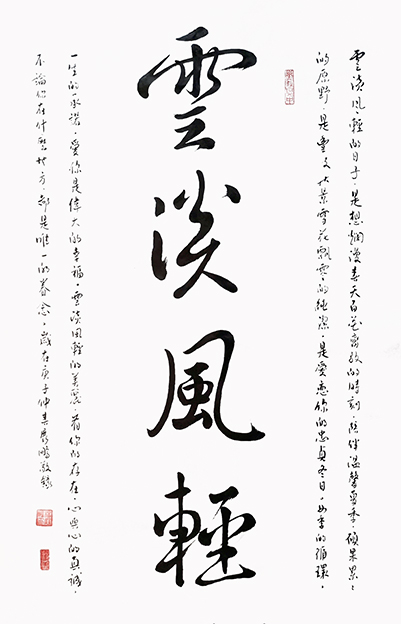 雲淡風輕的日子，是想爛漫春天百花齊放的時刻，陪伴溫馨夏季，累累
的原野，是雪花飄零的純潔，是愛戀你的忠貞冬日，四季的循環，
雲淡風輕
一生的承諾，愛你是偉大的幸福，雲淡風輕的美麗，有你的存在，心與心的真誠，
不論你在什麼地方，都是唯一的眷念，歲在庚子仲春敬錄